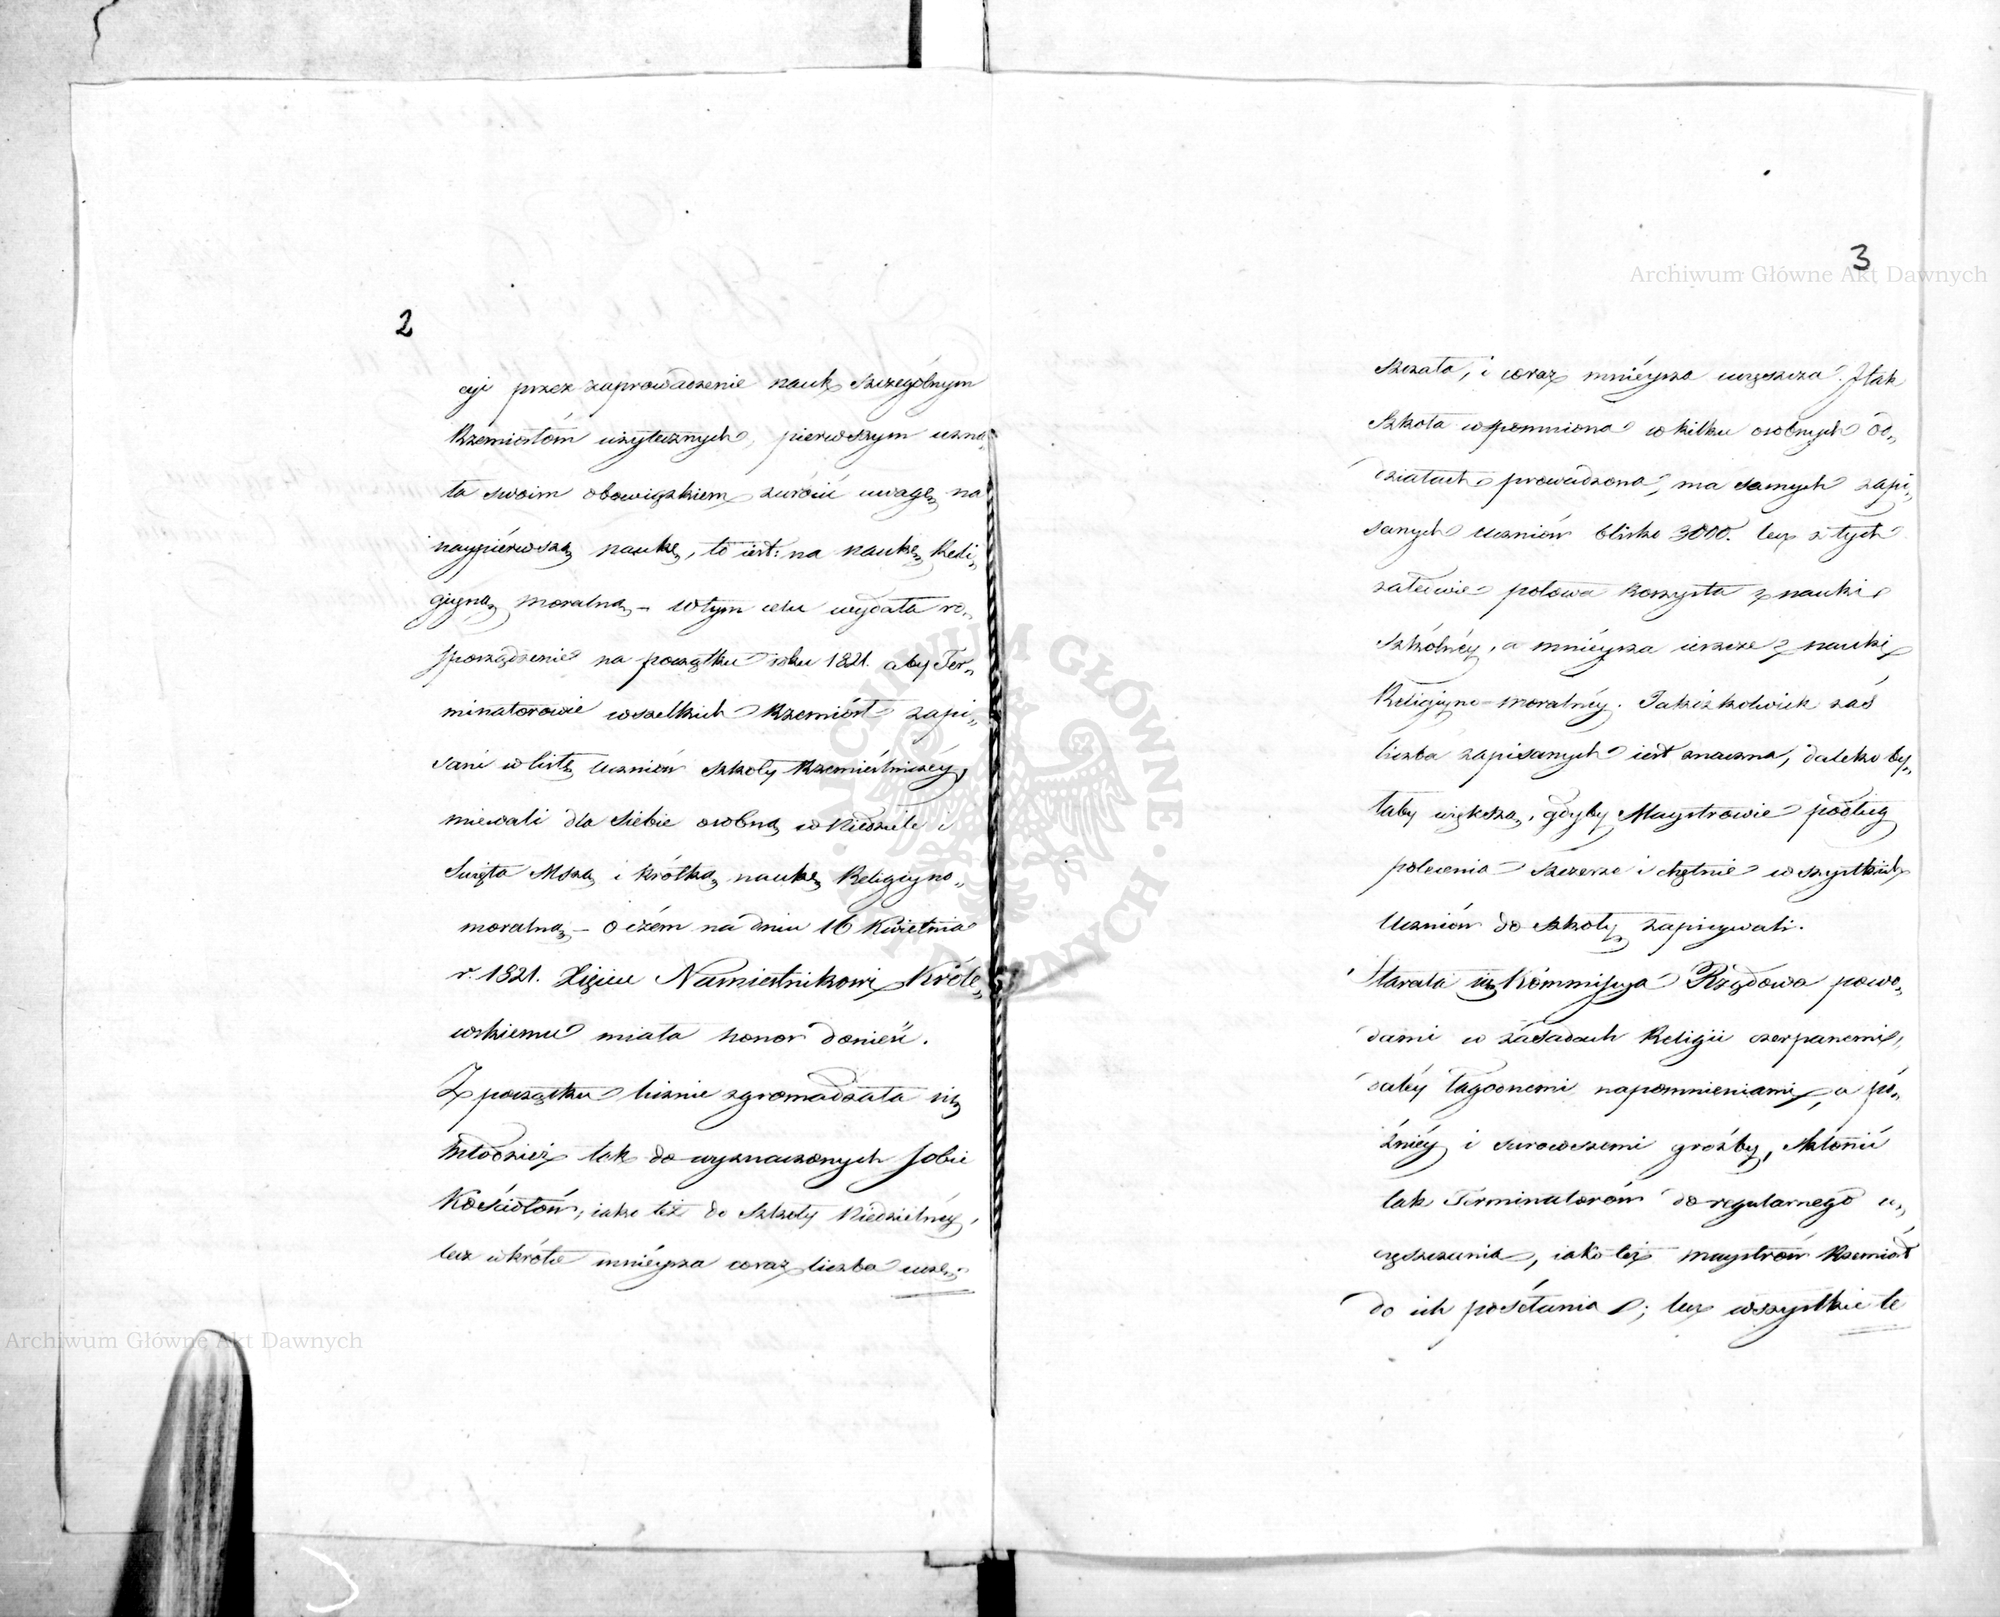 2
cyi przez zaprowadzenie nauk szczególnym
Rzemiosłóm użytecznych, pierwszym uzna„
ła swoim obowiązkiem zwrócić uwagę na
naypiérwszą naukę, to iest: na naukę Reli„
giyną moralną – w tym celu wydała ro„
sporządzenie na początku roku 1821. aby Ter„
minatorowie wszelkich Rzemiósł zapi„
sani w listę Uczniów szkoły Rzemieślniczéy,
miewali dla siebie osobną w Niedziele i
Święta Mszą i krótką naukę Religiyno„
moralną – o czém na dniu 16 Kwietnia
r. 1821. Xięciu Namiestnikowi Króle„
wskiemu miała honor donieść.
Z początku licznie zgromadzała się
młodzież tak do wyznaczonych sobie
Kościołów, iako też do Szkoły Niedzielnéy,
lecz wkrótce mniéysza coraz liczba uczę„
3
szczała, i coraz mniéysza uczęszcza. I tak
Szkoła wspomniona w kilku osobnych od„
działach prowadzona, ma samych zapi„
sanych uczniów blisko 3000. lecz z tych
zaledwie połowa korzysta z nauki
szkólnéy, a mniéysza ieszcze z nauki
Religiyno-moralnéy. Jakóżkolwiek zaś
liczba zapisanych iest znaczna, daleko by„
łaby większą, gdyby Maystrowie podług
polecenia szczerze i chętnie wszystkich
Uczniów do szkoły zapisywali.
Starała się Kommissya Rządowa powo„
dami w zasadach Religii czerpanemi,
daléy łagodnemi napomnieniami, a pó„
źniéy i surowszemi groźby, skłonić
tak Terminatorów do regularnego u„
częszczania, iako też maystrów Rzemiosł
do ich posełania; lecz wszystkie te
Archiwum Główne Akt Dawnych
Archiwum Główne Akt Dawnych
ARCHIWUM GŁÓWNE AKT DAWNYCH